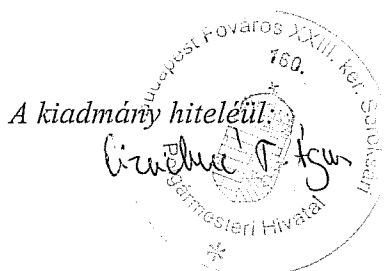 A kiadmány hiteléül:
Budapest Főváros XXIII. ker. Soroksár
160.
Polgármesteri Hivatal